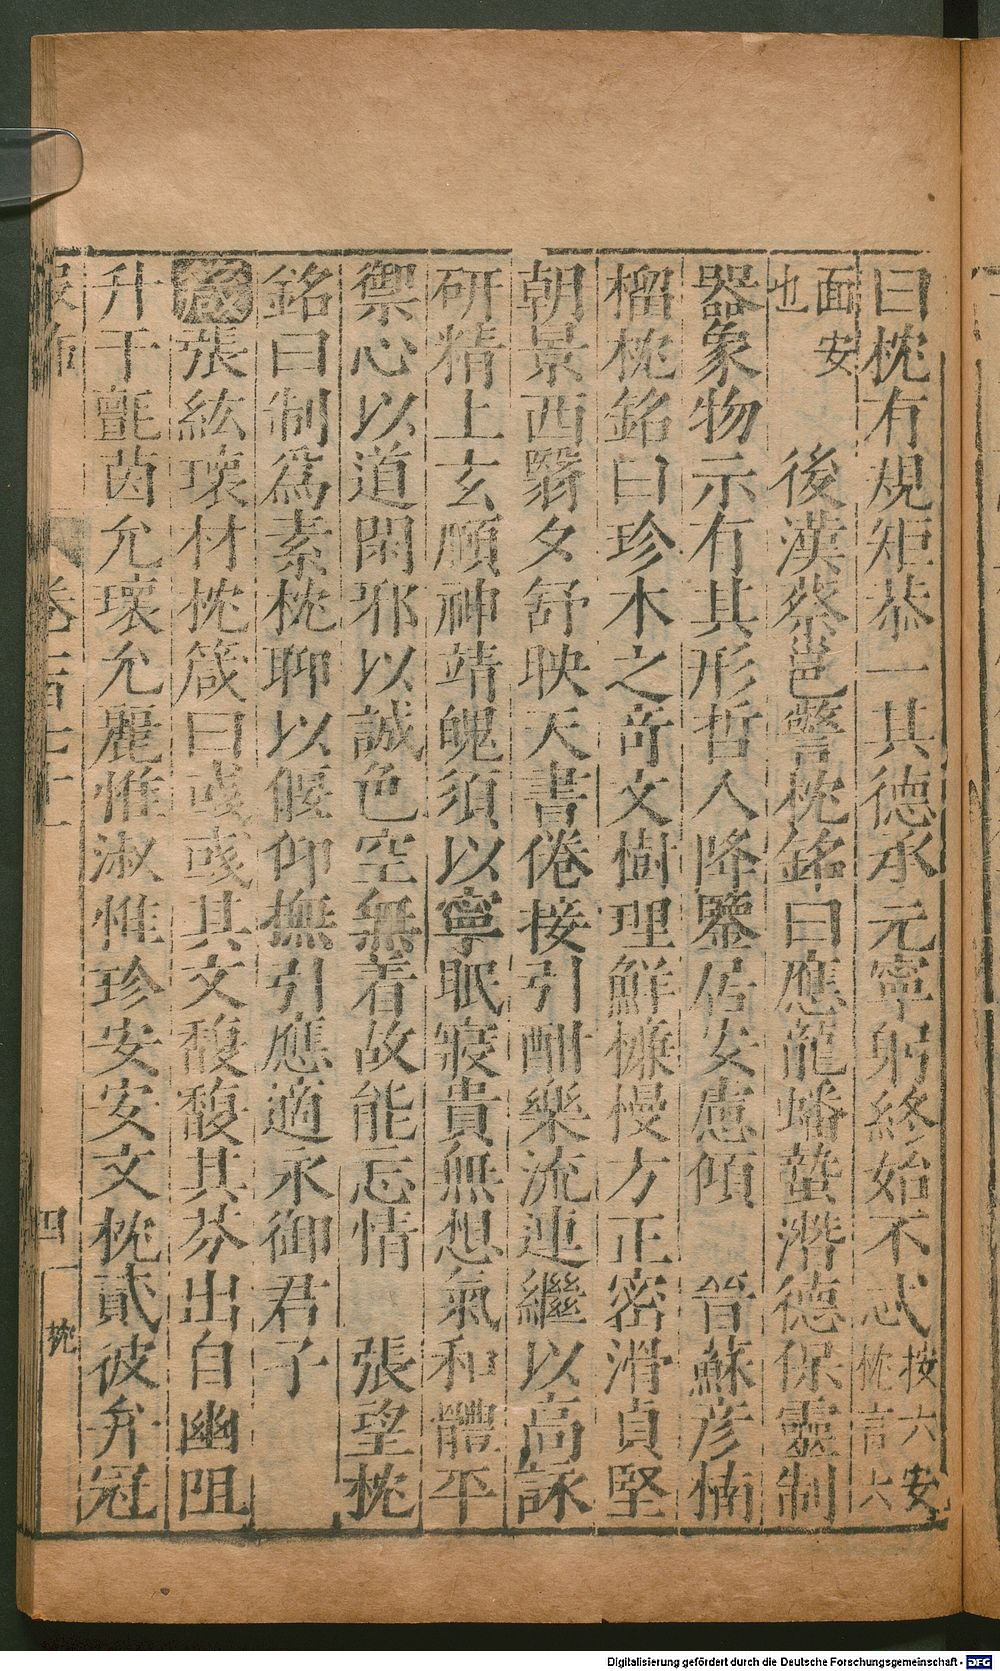 曰枕有規矩恭一其德承元寧躬終始不忒按六安枕言六
面安也　後漢蔡邕警枕銘曰應龍蟠蟄潛德保靈制
器象物示有其形哲人降鑒居安慮傾　晉蘇彥楠
榴枕銘曰珍木之奇文樹理鮮槏慢方正密滑貞堅
朝景西翳夕舒映天書倦接引酣樂流連繼以高詠
研精上玄頤神靖魄須以寧眠寢貴無想氣和體平
禦心以道閑邪以誠色空無着故能忘情　張望枕
銘曰制爲素枕聊以偃仰撫引應適永御君子
箴張紘瓌材枕箴曰彧彧其文馥馥其芬出自幽阻
升于氈茵允瓌允麗惟淑惟珍安安文枕貳彼弁冠
服飾　卷　四　枕
Digitalisierung gefördert durch die Deutsche Forschungsgemeinschaft - DFG